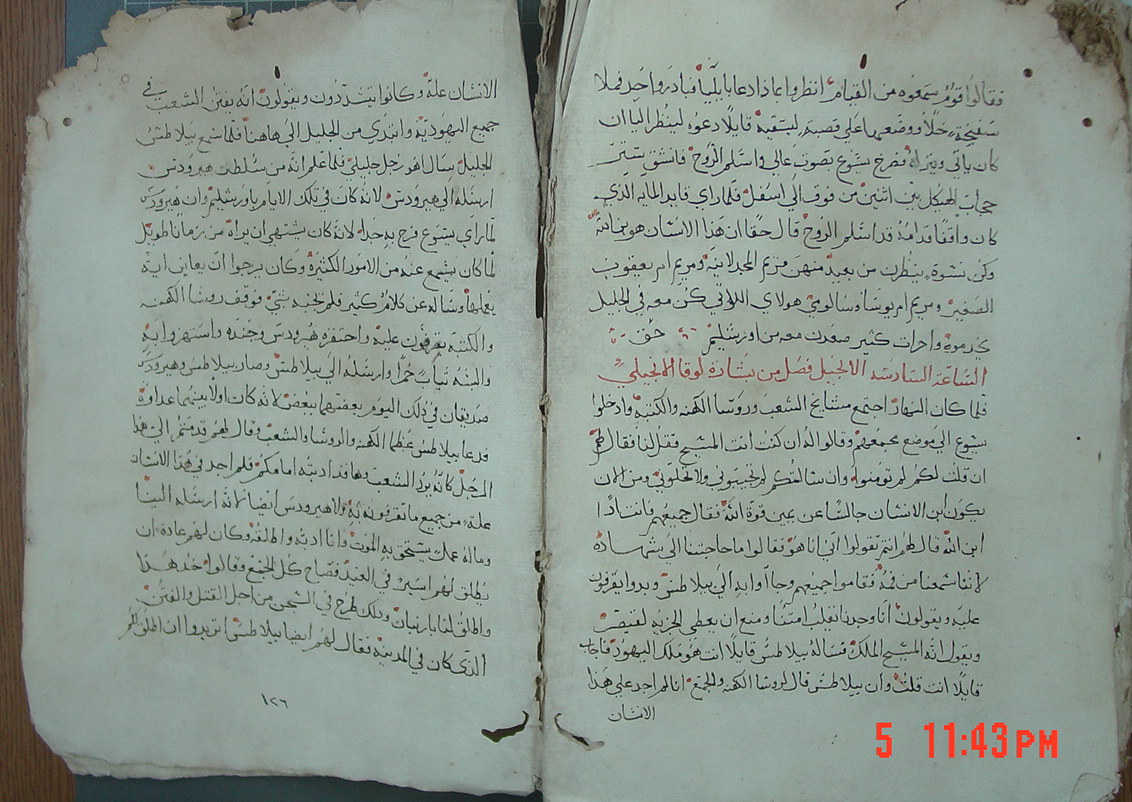 فقالوا قوم سمعوه من القيام انظروا ماذا دعا بايليا فبادر واحد فملا
سفنجة خلا ووضعها على قصبة ليسقيه قايلا دعوه لينظر اليا ان
كان ياتي وينزله فصرخ يسوع بصوت عالي واسلم الروح فانشق ستر
حجاب الهيكل بين اثنين من فوق الى اسفل فلما راي قايد المايه الذي
كان واقفا قدامه قد اسلم الروح قال حقا ان هذا الانسان هو بن الله
وكن نسوة ينظرن من بعيد منهن مريم المجدلانية ومريم ام يعقوب
الصغير ومريم ام يوسا وسالومي هولاي اللاتي كن معه في الجليل
يخدموه واخرات كثير صعدت معه من اورشليم حق
الساعة السادسه الانجيل فصل من بشارة لوقا الانجيلي
فلما كان النهار اجتمع مشايخ الشعب وروسا الكهنه والكتبة وادخلوا
يسوع الى موضع مجمعهم وقالوا له ان كنت انت المسيح فقل لنا فقال لهم
ان قلت لكم لم تومنوا وان سالتكم لم تجيبوني ولا تخلوني ومن الان
يكون ابن الانسان جالسا عن يمين قوة الله فقال جميعهم فانت اذا
ابن الله قال لهم انتم تقولوا اني انا هو فقالوا ما حاجتنا الى شهاده
لاننا سمعنا من فمه فقاموا جميعهم وجاٱوا به الى بيلاطس وبدوا يقرفون
عليه ويقولون انا وجدنا يقلب امتنا ومنع ان يعطي الجزيه لقيصر
ويقول انه المسيح الملك فساله بيلاطس قايلا انت هو ملك اليهود فاجاب
قايلا انت قلت وان بيلاطس قال لروسا الكهنه والجمع انا لم اجد على هذا
الانسان
الانسان علة وكانوا يتشددون ويقولون انه يفتن الشعب في
جميع اليهودية وابتدي من الجليل الى هاهنا فلما سمع بيلاطس
الجليل سال هو رجل جليلي فلما علم انه من سلطت هيرودس
ارسله الى هيرودس لانه كان في تلك الايام باورشليم وان هيرودس
لما راي يسوع فرح به جدا لانه كان يشتهي ان يراه من زمانا طويل
لما كان يسمع عنه من الامور الكثيرة وكان يرجوا ان يعاين ايه
يعملها وساله عن كلام كثير فلم يجبه بشي فوقف روسا الكهنه
والكتبة يقرفون عليه واحتقره هيرودس وجنده واستهزوا به
والبسه ثياب حمرا وارسله الى بيلاطس وصار بيلاطس وهيرودس
صديقان في ذلك اليوم بعضهما ببعض لانه كان اولا بينهما عداوه
فدعا بيلاطس عظما الكهنه والروسا والشعب وقال لهم قدمتم الى هذا
الرجل كانه يرد الشعب وها قد ادبته امامكم فلم اجد في هذا الانسان
علة من جميع ما تقرفونه به ولا هيرودس ايضا لانه ارسله الينا
وماله عمل يستحق به الموت وانا ادبه واطلقه وكان لهم عادة ان
يطلق لهم اسير في العيد فصاح كل الجمع وقالوا خذ هذا
واطلق لنا بارنبان وذلك طرح في السجن من اجل القتل والفتن
الذي كان في المدينة فقال لهم ايضا بيلاطس اتريدوا ان اطلق لكم
١٢٦
5 11:43 PM